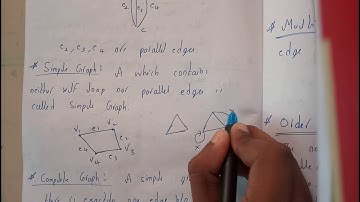 e₂ e₃ e₄
C
e₂, e₃, e₄ are parallel edges
* Simple Graph: A which contains
neither self loop nor parallel edges is
called Simple Graph.
V₁ e₁ V₂
e₄ e₂
V₄ e₃ V₃
* Complete Graph: A simple
exactly one edge
edge
* Order
The
no